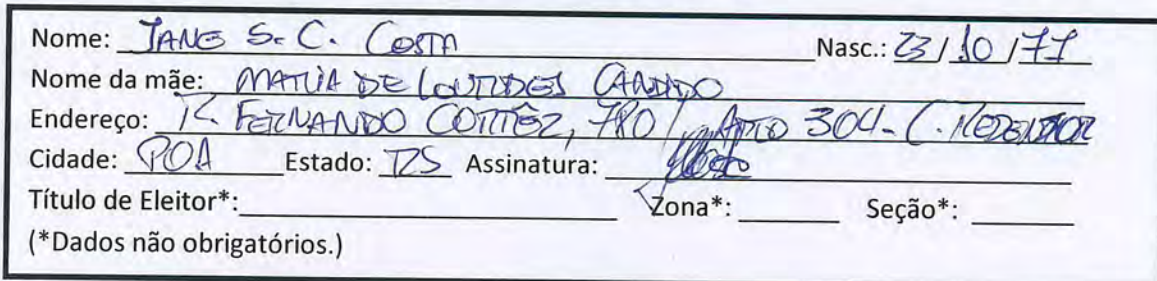 Nome: JANE S. C. COSTA Nasc.: 23/10/77
Nome da mãe: MARIA DE LOURDES CANDIDO
Endereço: R. FERNANDO CORTÊZ, 780/ APTO 304 - C. REDENTOR
Cidade: POA Estado: RS Assinatura:
Título de Eleitor*: Zona*: Seção*:
(*Dados não obrigatórios.)